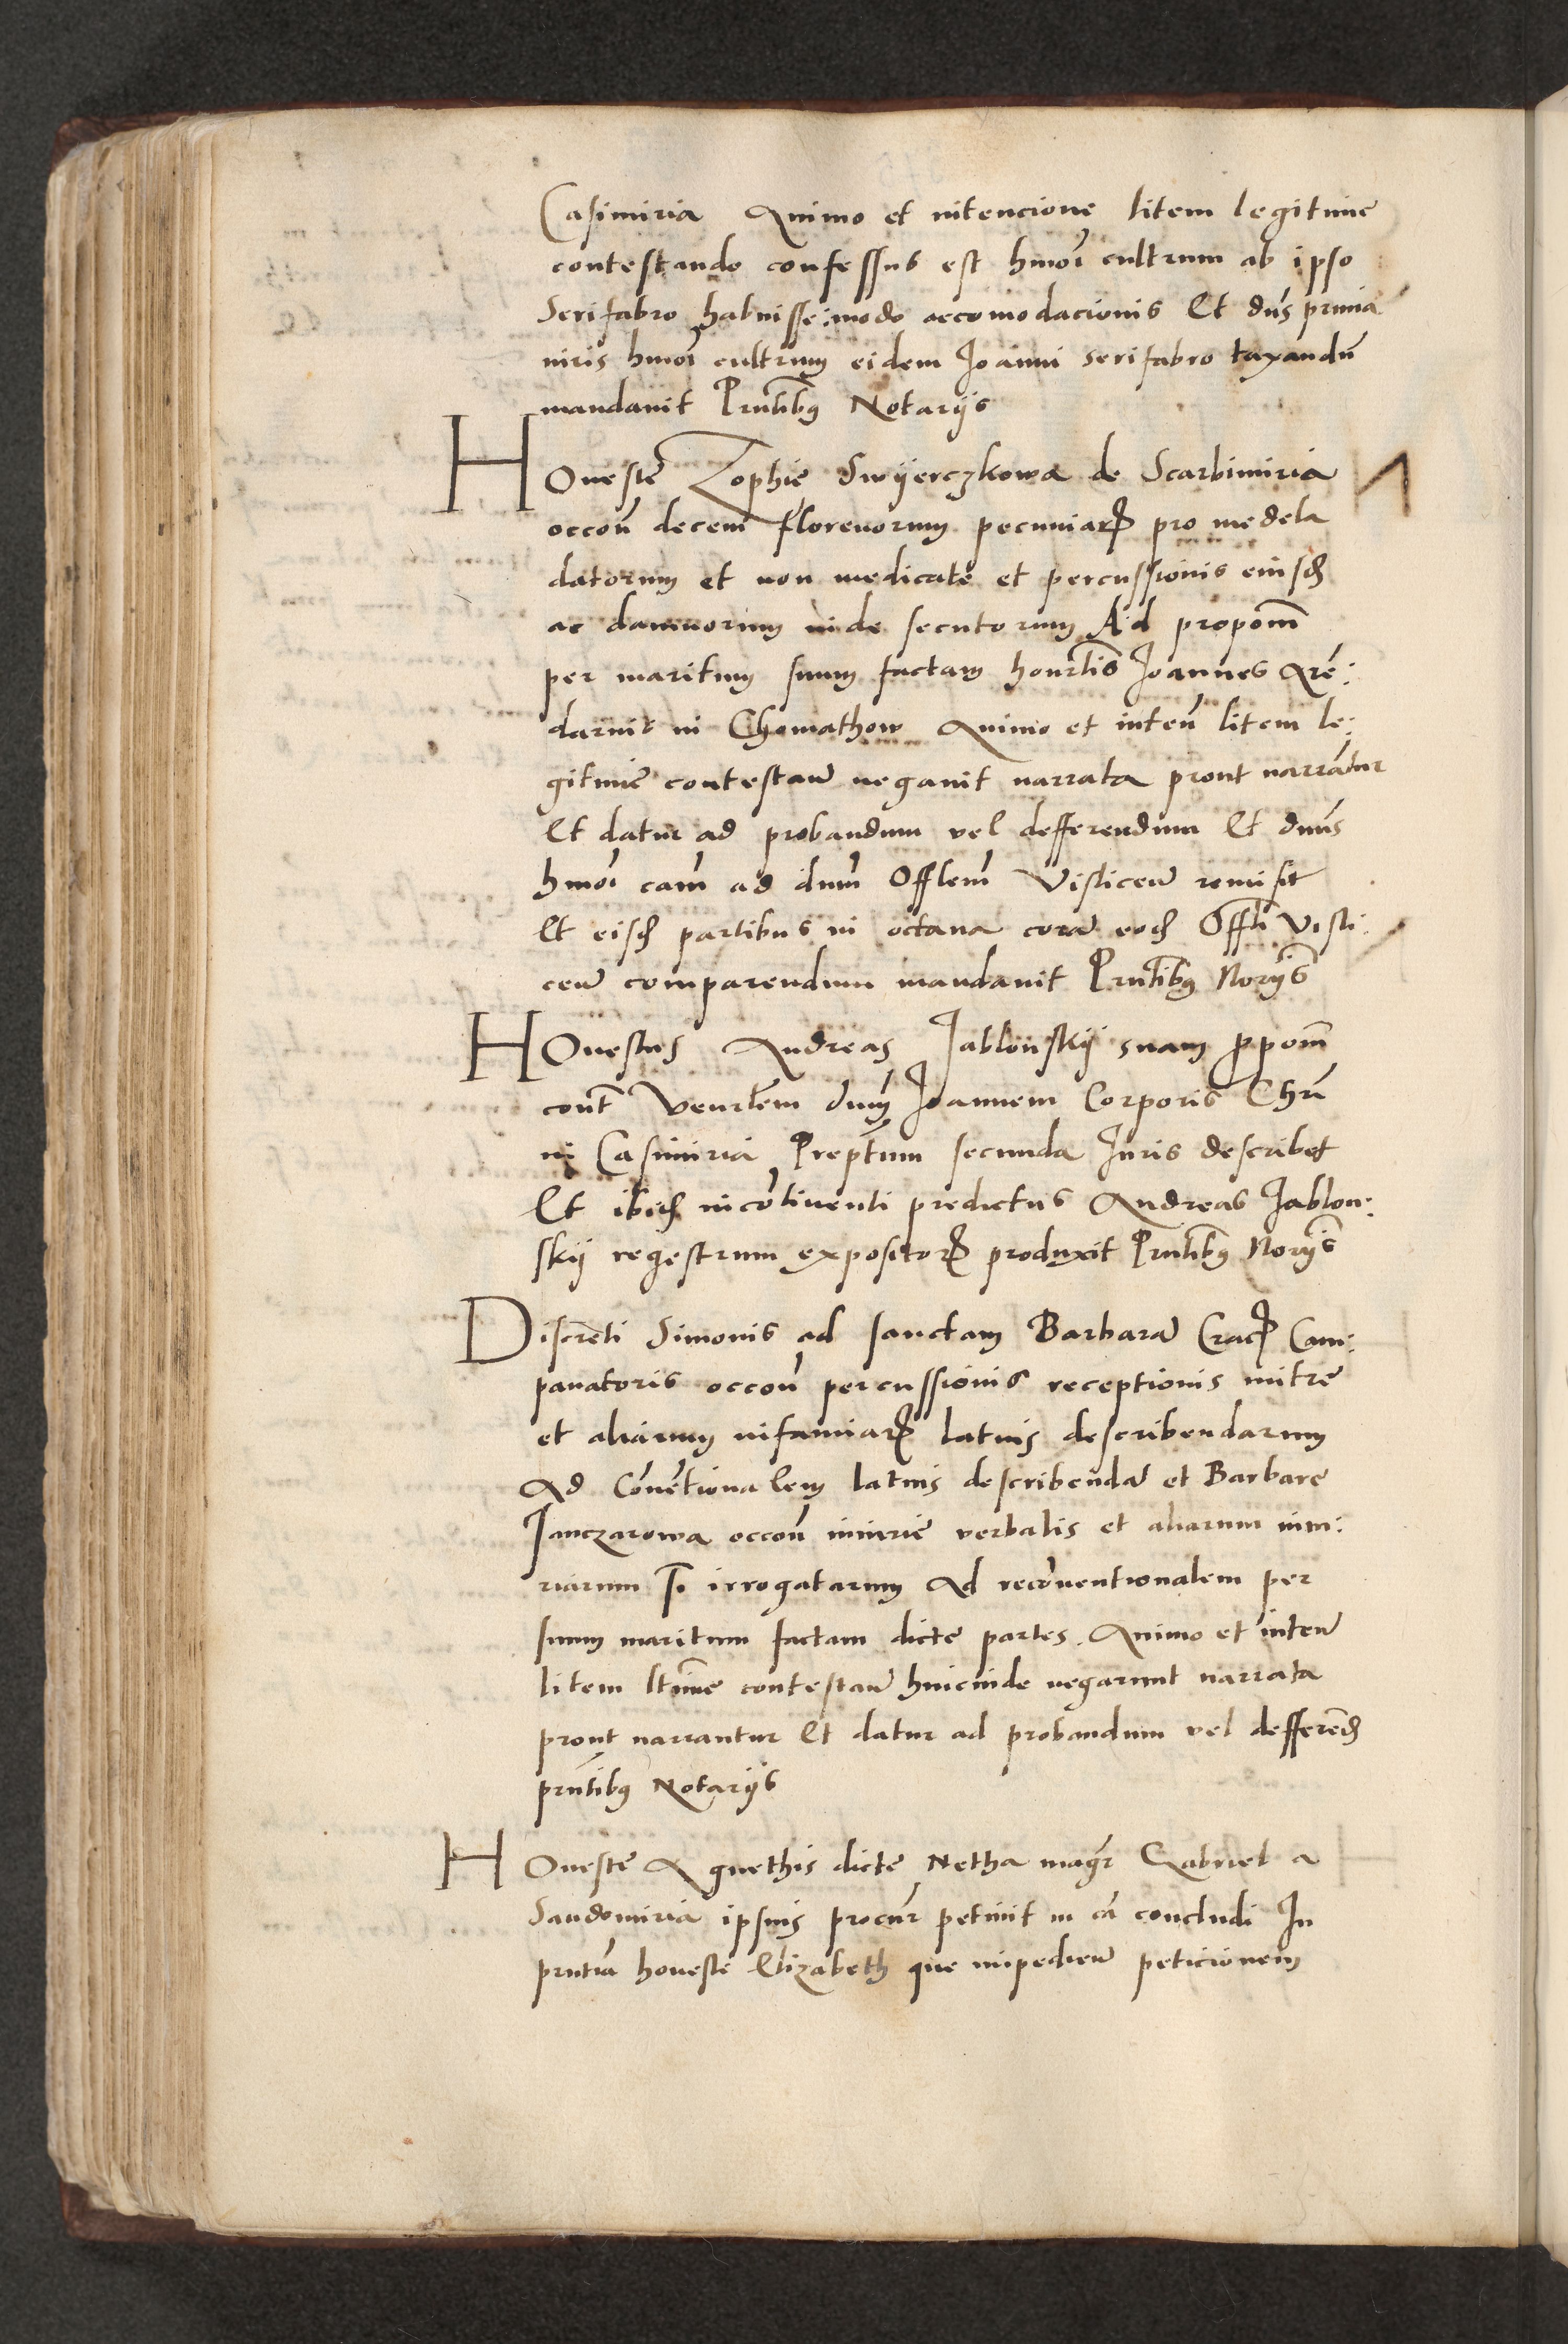 Casimiria Animo et intencione litem legitime
contestando confessus est hmoi cultrum ab ipso
Serifabro habuisse: modo accomodacionis Et dns prima
iuris hmoi cultrum eidem Joanni serifabro taxandū
mandavit Prntibus Notarijs
Honeste Zophie Swijerczkowa de Scarbimiria
occon̄ decem florenorum pecuniarꝝ pro medela
datorum et non medicate et percussionis eiusdꝫ
ac damnorum inde secutorum Ad propom̄
per maritum suum factam honrlis Joannes Are:
darius in Chomathow Animo et inten̄ litem le:
gitime contestan̄ negavit narrata prout narrātur
Et datur ad probandum vel defferendum Et dnūs
hmoi cam̄ ad dnm̄ Offlem̄ Visliceñ remisit
Et eisdꝫ partibus in octava corā eodꝫ Offli Visli:
ceñ comparendum mandavit Prntibus Norijs
Honestus Andreas Jablonskij suam ꝓpom̄
cont̄ Venrlem dnm̄ Joannem Corporis Chri
in Casimiria Preptum secunda Juris describet
Et ibidꝫ incōtinenti predictus Andreas Jablon:
skij regestrum expositorꝝ produxit Prntibus Norijs
Discreti Simonis ad sanctam Barbarā Cracꝫ Cam:
panatoris occon̄ percussionis receptionis mitre
et aliarum infamiarꝝ latius describendarum
Ad Cōnētionalem latius describendā et Barbare
Janczarowa occon̄ iniurie verbalis et aliarum iniu:
riarum si irrogatarum Ad recōventionalem per
suum maritum factam dicte partes. Animo et inteñ
litem ltime contestañ hincinde negarunt narrata
prout narrantur Et datur ad probandum vel defferēdꝫ
prntibus Notarijs
Honeste Agnethis dicte Netha magr̄ Gabriel a
Sandomiria ipsius procur̄ petivit in cā concludi In
prntia honeste Elizabeth que impedieñ peticionem